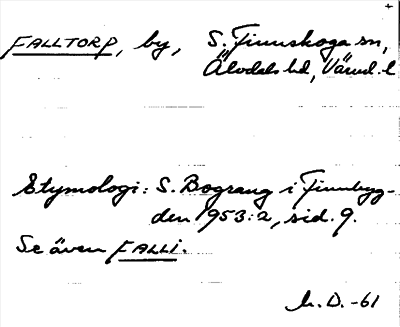 FALLTORP, by, S. Finnskoga sn,
Älvdals hd, Värml. l
Etymologi: S. Bograng i Finnbyg-
den 1953:2, sid. 9.
Se även FALLI.
M.D.-61